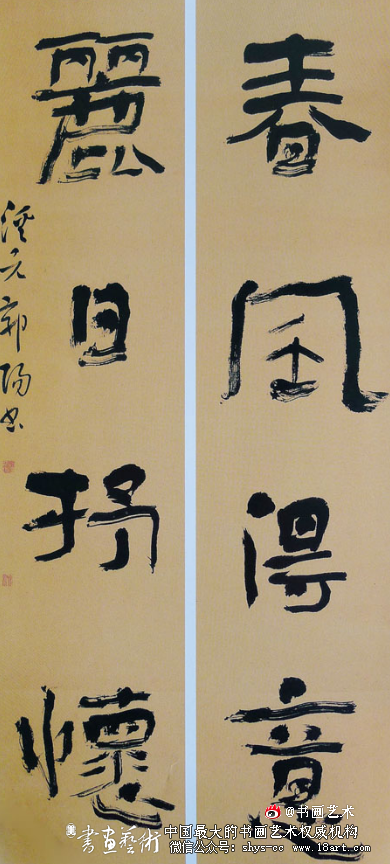 春風得意
麗日抒懷
元郭陽書
@书画艺术
書畫藝術
中国最大的书画艺术权威机构
微信公众号：shys-cc www.18art.com